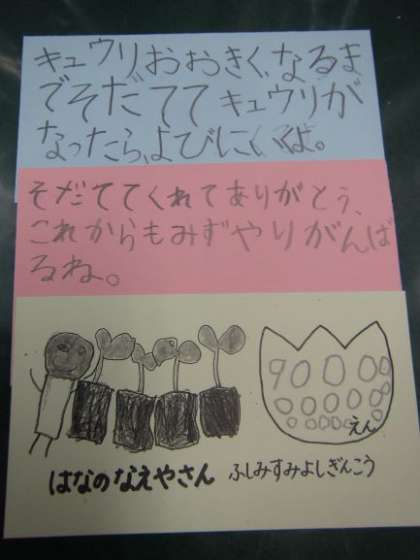 キュウリおおきく、なるま
でそだてて キュウリが
なったら、よびに、いくよ。
そだててくれてありがとう、
これからもみずやりがんば
るね。
90000
えん
はなのなえやさん ふしみすみよしぎんこう